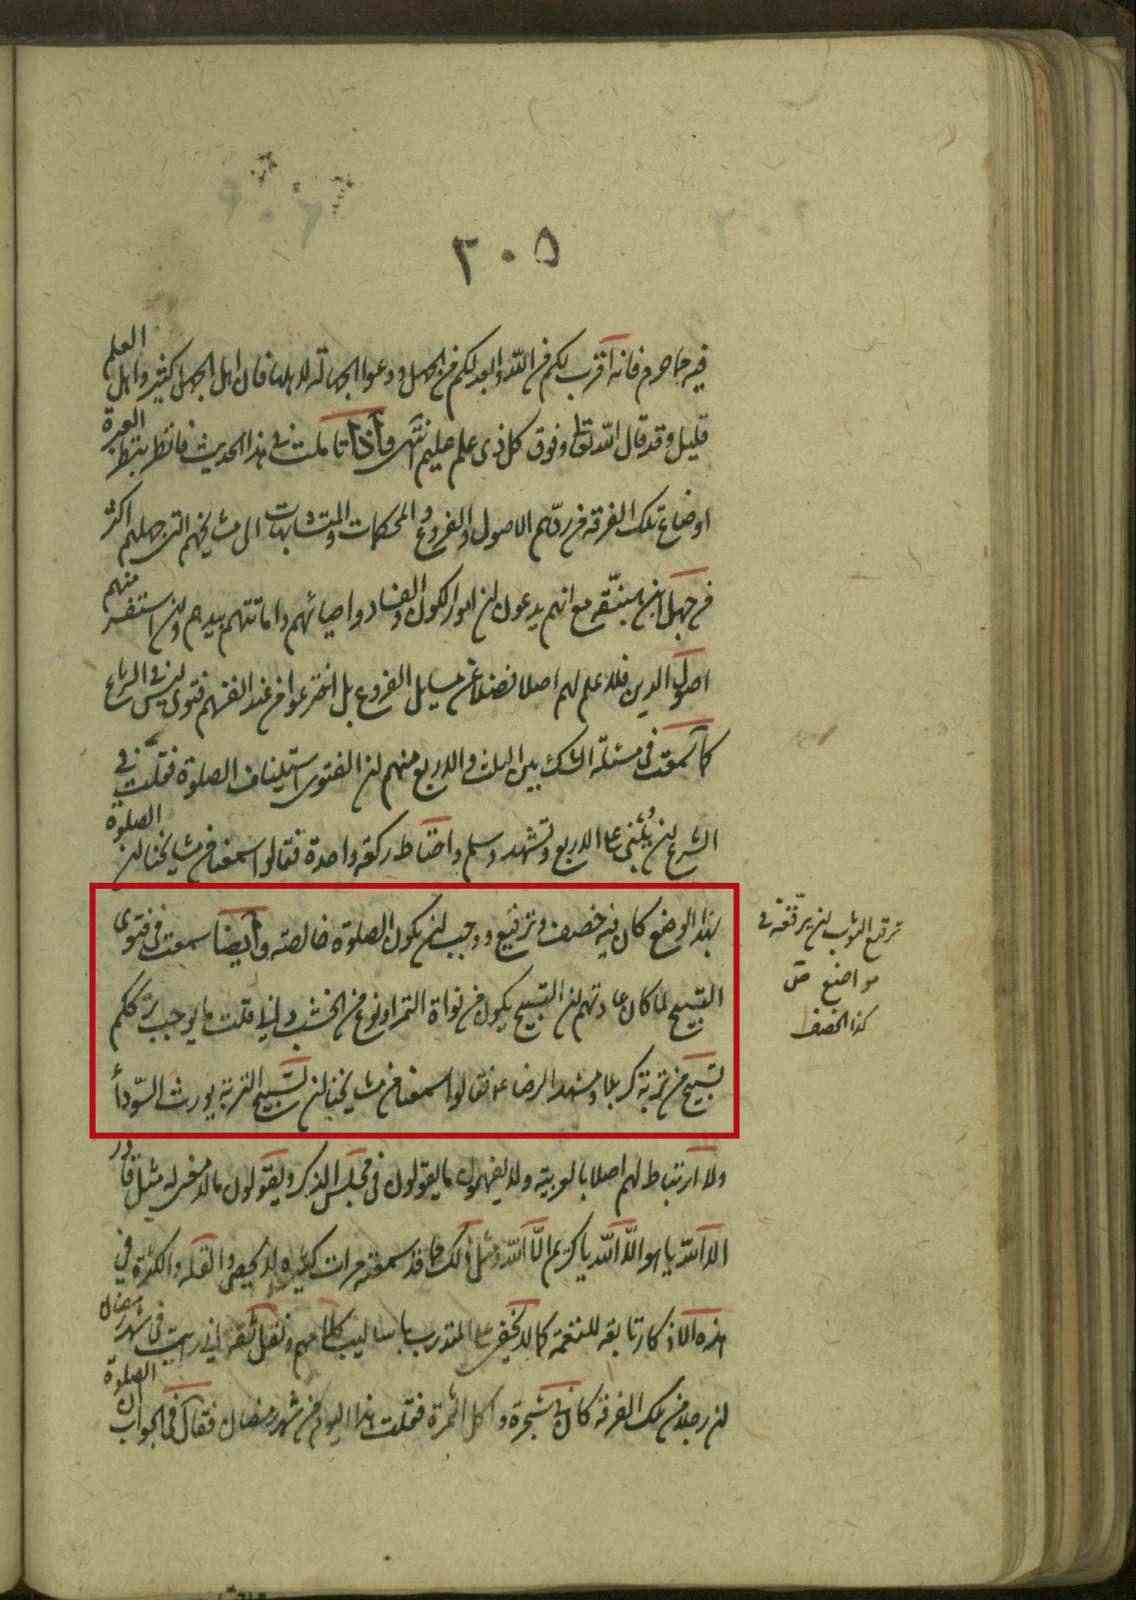 ٣٠٥
فيه جاحرم فانه اقرب لكم من اللّه وابعد لكم من الجهل ودعوا الجهالة لاهلها فان اهل الجهل كثير واهل العلم
قليل وقد قال اللّه تعالى وفوق كل ذى علم عليم انتهى واذا تاملت فى هذا الحديث فانظر بنظر العبرة
اوضاع تلك الفرقه فى ردّهم الاصول والفروع والمحكمات والمتشابهات الى مشايخهم التى جهلهم اكثر
من جهل ابن مع انهم يدعون ان امور الكون والفساد واحيائهم واماتتهم بيدهم وان استفسر منهم
اصول الدين فلا علم لهم اصلا فضلا عن مسايل الفروع بل اخترعوا من عند انفسهم فتوى ليس فى الشرع
كما سمعت فى مسئلة الشك بين الثلث والاربع منهم ان الفتوى استيناف الصلوة فقلت فى
الشرع ان يُبْنى على الاربع وتشهد وسلم واحتاط ركعة واحدة فقالوا سمعنا من مشايخنا ان الصلوة
بهذا الوضع كان فيه خصف وترقيع ووجب ان يكون الصلوة خالصة وايضا سمعت فى فتوى
التسبيح لما كان عادتهم ان التسبيح يكون من نواة التمر او نوع من الخشب وانى قلت ما يوجب ترككم
تسبيح من تربة كربلا ومشهد الرضا ع فقالوا سمعنا من مشايخنا ان تسبيح التربة يورث السّودأ
ولا ارتباط لهم اصلا بالعربية ولا يفهمون ما يقولون فى مجلس الذكر ويقولون ما لا معنى له مثل قادر
الا اللّه يا هو الّا اللّه يا كريم الّا اللّه ومثل ذلك مما قد سمعته مرات كثيرة لا يحصى والقلة والكثرة فى
هذه الاذكار تابعة للنغمة كما لا يخفى على المتدرب باساليب كلامهم ونقل ثقة انى رايت فى شهر رمضان
ان رجلا من تلك الفرقة كان فى شجرة واكل الثمرة فقلت هذا اليوم من شهر رمضان فقال فى الجواب ان الصلوة
ترقيع الثوب ان يرقّعه فى
مواضع ص
كذا الخصف